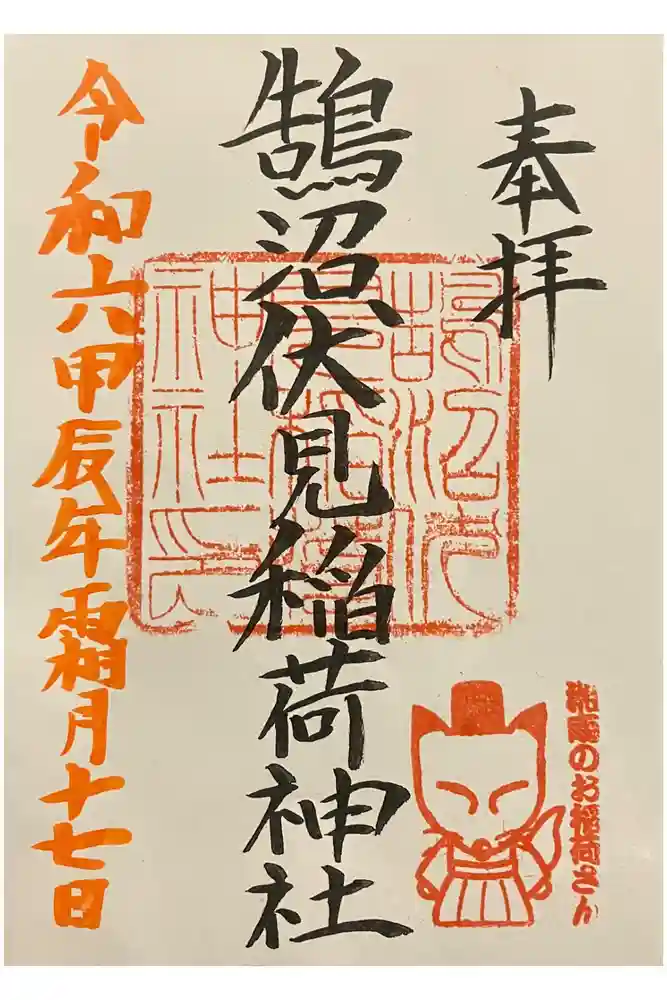 奉拝
のお稲荷さん
鵠沼伏見稲荷神社
鵠沼伏
見稲荷
神社印
令和六甲辰年霜月十七日